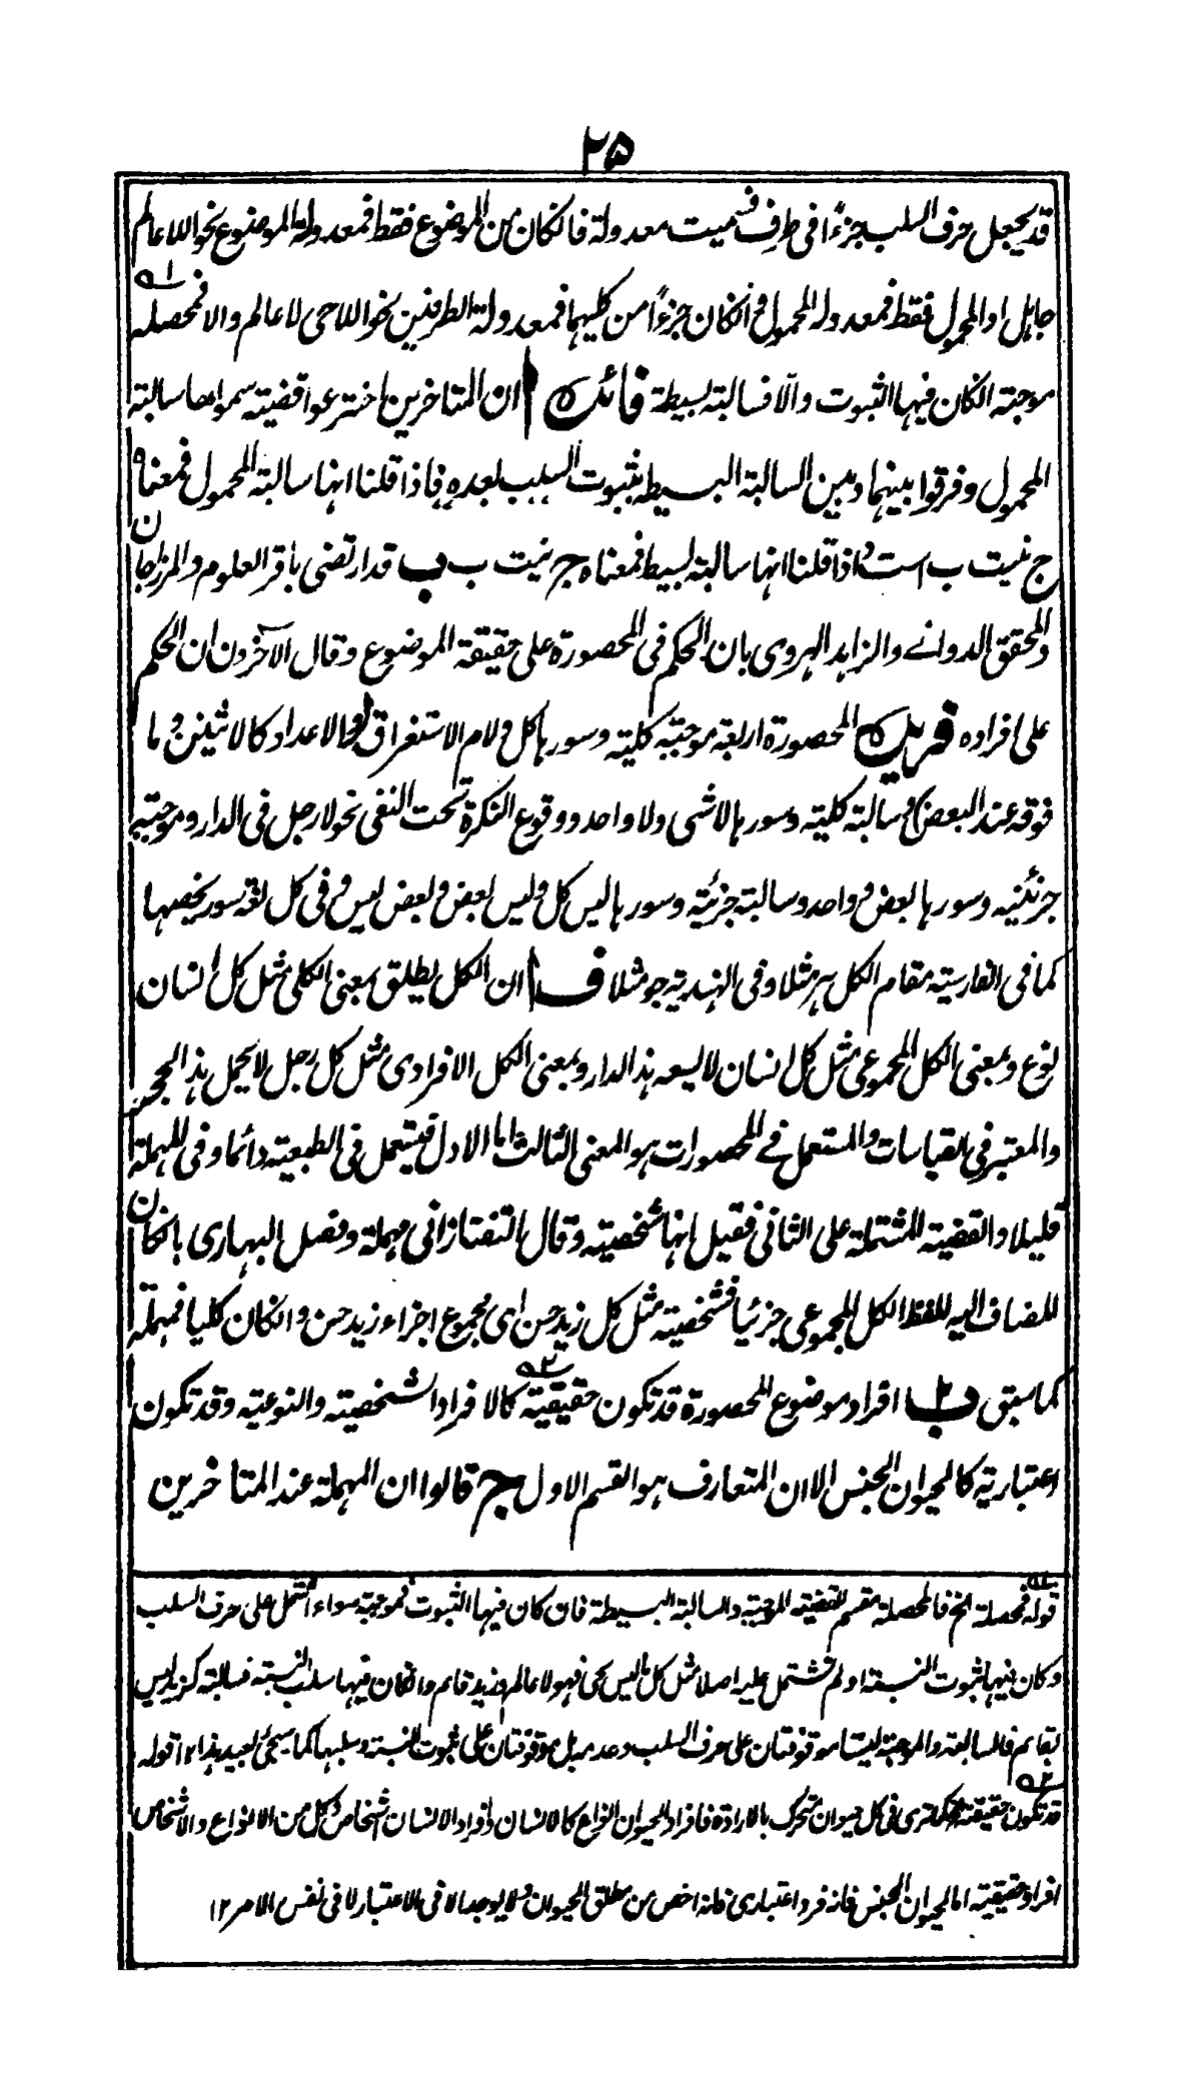 ٢٥
قد يجعل حرف السلب جزءًا فى طرف فسميت معدولة فان كان من الموضوع فقط فمعدولة الموضوع نحو اللاعالم
جاهل او المحمول فقط فمعدولة المحمول وانكان جزءًا من كليهما فمعدولة الطرفين نحو اللاحى لاعالم والا فمحصلة ١
موجبة انكان فيها الثبوت والا فسالبة بسيطة فائدة ا ان المتاخرين اخترعوا قضية سموها سالبة
المحمول وفرقوا بينها وبين السالبة البسيطة بثبوت السلب بعده فاذا قلنا انها سالبة المحمول فمعناه
ج نيست ب است واذا قلنا انها سالبة بسيط فمعناه ج نيست ب ب قد ارتضى باقر العلوم والمرزاجان
والمحقق الدوانے والزاهد الهروى بان الحكم فى المحصورة على حقيقة الموضوع وقال الآخرون ان الحكم
على افراده فريدة المحصورة اربعة موجبة كلية وسورها كل ولام الاستغراق والاعداد كالاثنين و ما
فوقه عند البعض وسالبة كلية وسورها لاشى ولا واحد ووقوع النكرة تحت النفى نحو لا رجل فى الدار وموجبة
جزئية وسورها بعض وواحد وسالبة جزئية وسورها ليس كل وليس بعض وبعض ليس وفى كل لغة سور يخصها
كما فى الفارسية مقام الكل هر مثلا وفى الهندية جو مثلا ف ا ان الكل يطلق بمعنى الكلى مثل كل انسان
نوع وبمعنى الكل المجموعى مثل كل انسان لا يسعه هذا الدار وبمعنى الكل الافرادى مثل كل رجل لا يحمل هذا الحجر
والمعتبر فى القياسات والمستعمل فے المحصورات هو المعنى الثالث اما الاول فيستعمل فى الطبعية دائما وفى المهملة
قليلا والقضية المشتملة على الثانى فقيل انها شخصية وقال التفتازانى مهملة وفصل البهارى بانكان
المضاف اليه للفظ الكل المجموعى جزئيا فشخصية مثل كل زيد حسن اى مجموع اجزاء زيد حسن وانكان كليا فمهملة
كما سبق ب افراد موضوع المحصورة قد تكون حقيقية ٢ كالافراد الشخصية والنوعية وقد تكون
اعتبارية كالحيوان الجنس الا ان المتعارف هو القسم الاول ج قالوا ان المهملة عند المتاخرين
قوله فمحصلة الخ فالمحصلة مقسم للقضية الموجبة والسالبة البسيطة فان كان فيها الثبوت فموجبة سواء اشتمل على حرف السلب
وكان فيها ثبوت النسبة او لم تشتمل عليه اصلا مثل كل ما ليس بحى فهو لا عالم وزيد قائم وانكان فيها سلب النسبة فسالبة كزيد ليس
بقائم فالسالبة والموجبة ليستا موقوفتان على حرف السلب وعدمه بل موقوفتان على ثبوت النسبة وسلبها كما سيجئ بعيد هذا ١٢ قوله
قد تكون حقيقية كما ترى فى كل حيوان متحرك بالارادة فافراد الحيوان انواع كالانسان وافراد الانسان اشخاص وكل من الانواع والاشخاص
افراد حقيقية اما الحيوان الجنس فانه فرد اعتبارى فانه اخص من مطلق الحيوان ولا يوجد الا فى الاعتبار لا فى نفس الامر ١٢